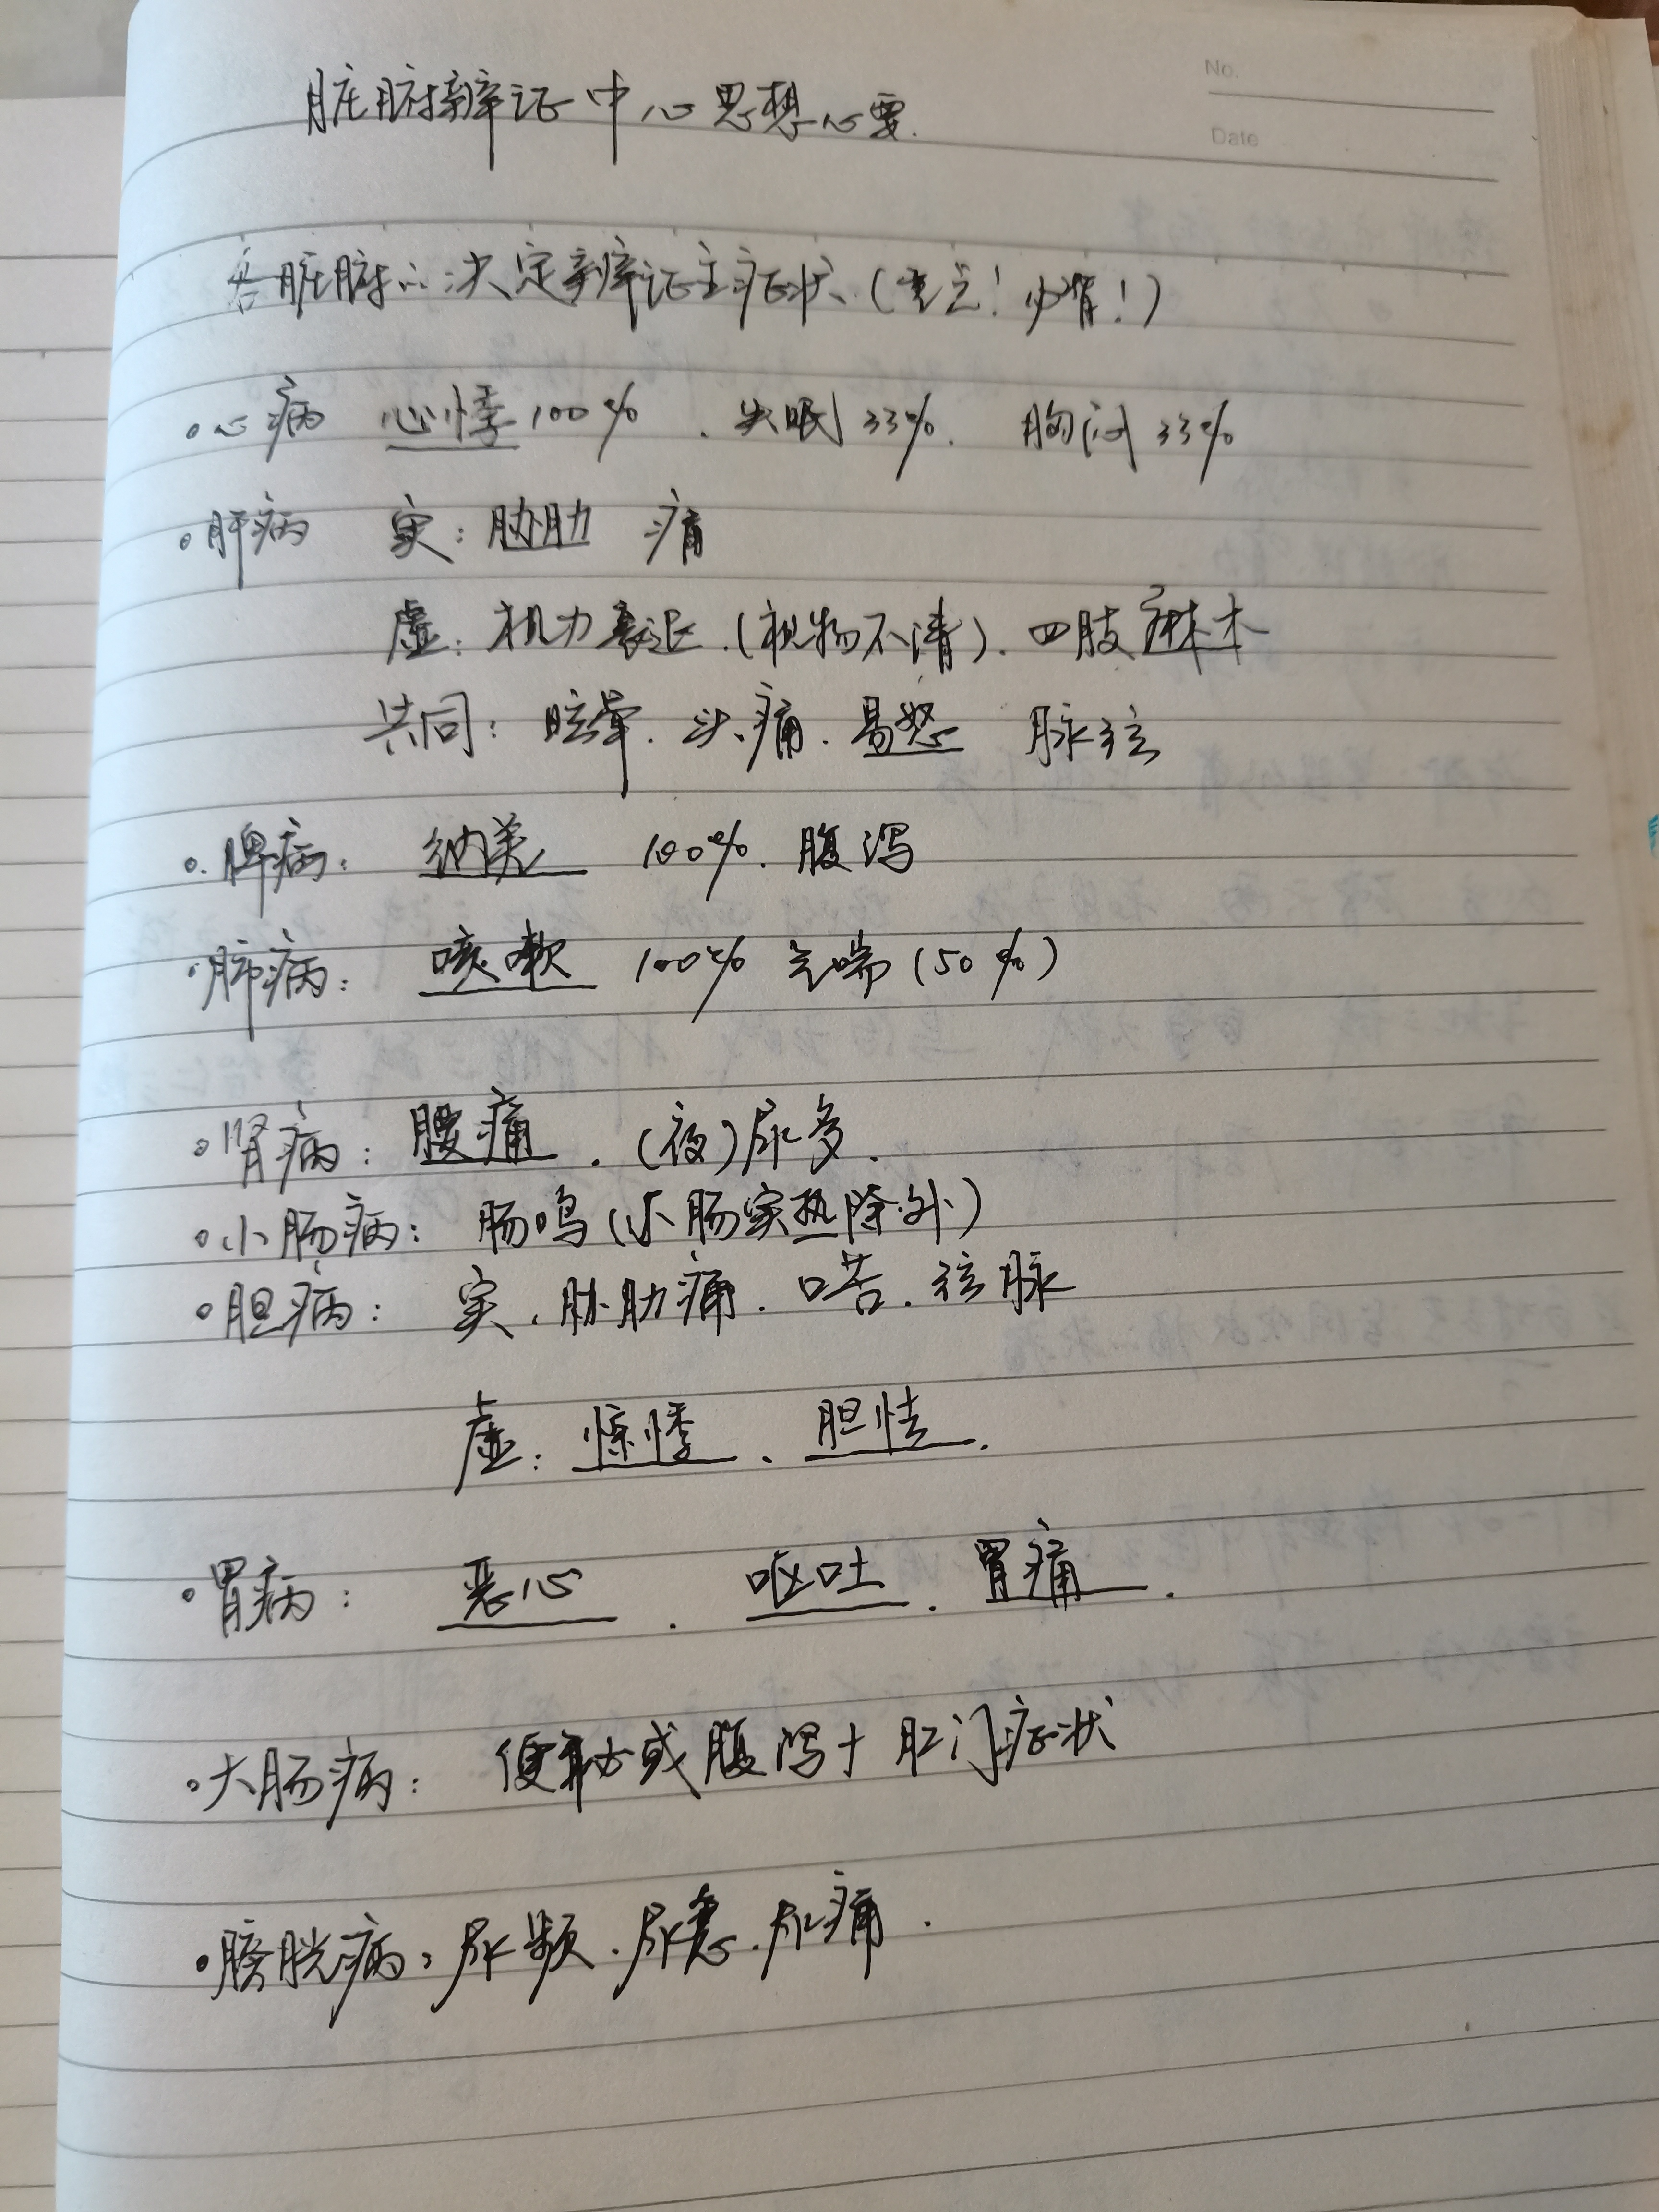 No.
Date
脏腑辨证中心思想心要.
各脏腑心决定辨证主症状(重点!必背!)
心病 心悸100% . 失眠33%. 胸闷33%
肝病 实:胁肋 痛
虚:视力衰退.(视物不清).四肢麻木
共同:眩晕.头痛.易怒 脉弦
脾病: 纳差 100%.腹泻
肺病: 咳嗽 100% 气喘(50%)
肾病:腰痛.(夜)尿多.
小肠病: 肠鸣(小肠实热除外)
胆病: 实.胁肋痛.口苦.弦脉
虚:惊悸.胆怯.
胃病: 恶心.呕吐.胃痛.
大肠病: 便秘或腹泻+肛门症状
膀胱病:尿频.尿急.尿痛.